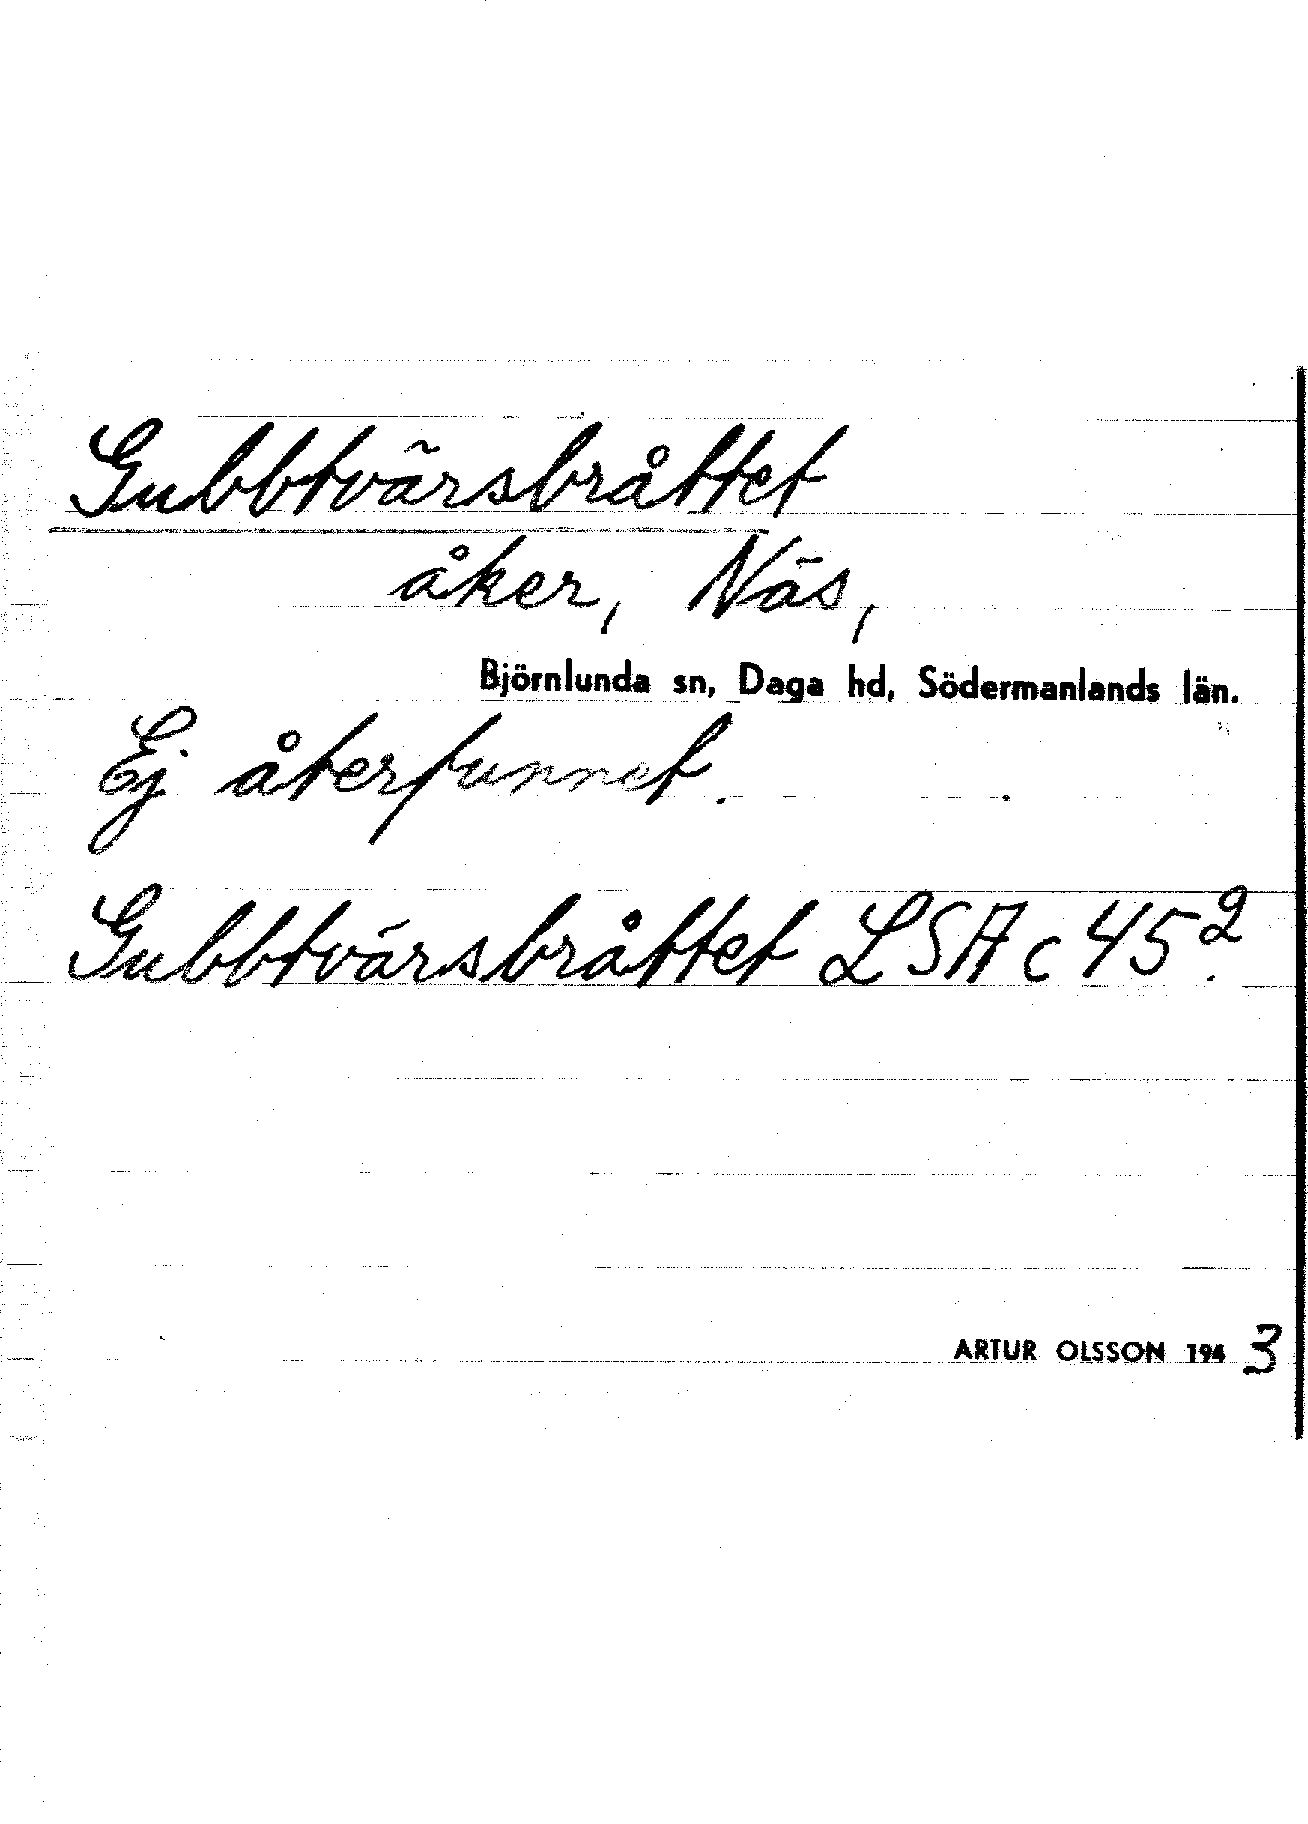 Gubbtvärsbråttet
åker, Näs,
Björnlunda sn, Daga hd, Södermanlands län.
Ej återfunnet.
Gubbtvärsbråttet LSA c 45².
ARTUR OLSSON 1943